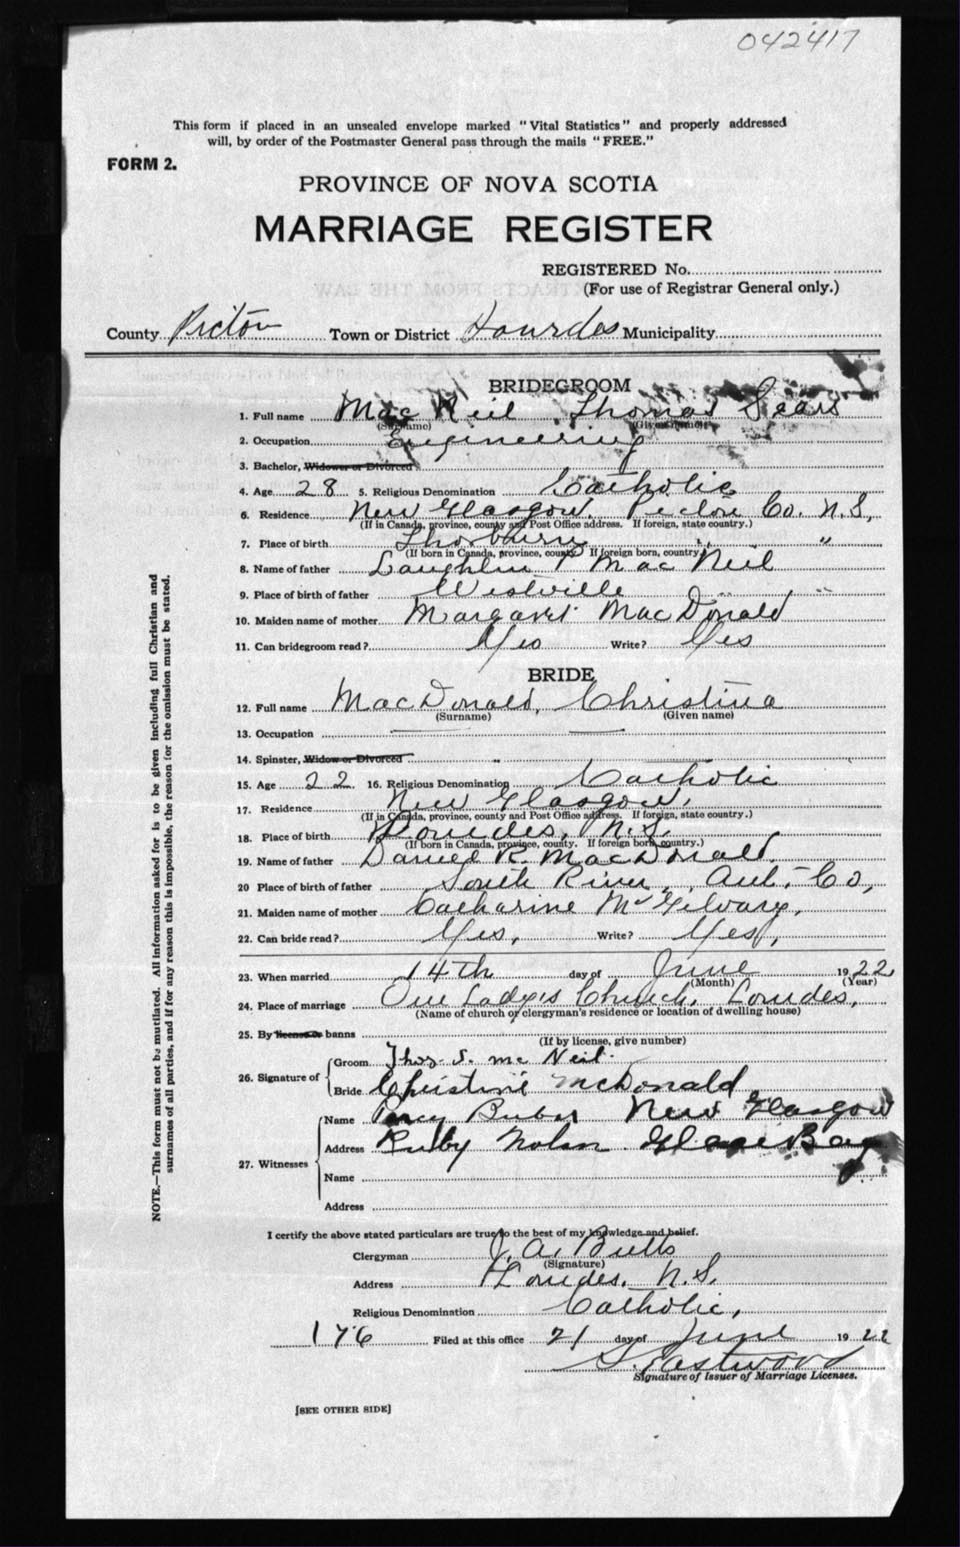 042417
This form if placed in an unsealed envelope marked "Vital Statistics" and properly addressed
will, by order of the Postmaster General pass through the mails "FREE."
FORM 2.
PROVINCE OF NOVA SCOTIA
MARRIAGE REGISTER
REGISTERED No.
(For use of Registrar General only.)
County Pictou Town or District Lourdes Municipality
BRIDEGROOM
1. Full name MacNeil Thomas Sears
(Surname) (Given name)
2. Occupation Engineering
3. Bachelor, Widower or Divorced
4. Age 28 5. Religious Denomination Catholic
6. Residence New Glasgow, Pictou Co. N.S,
(If in Canada, province, county and Post Office address. If foreign, state country.)
7. Place of birth Thorburn " "
(If born in Canada, province, county. If foreign born, country.)
8. Name of father Laughlin MacNeil
9. Place of birth of father Westville " "
10. Maiden name of mother Margaret MacDonald
11. Can bridegroom read? Yes Write? Yes
BRIDE
12. Full name MacDonald, Christina
(Surname) (Given name)
13. Occupation
14. Spinster, Widow or Divorced
15. Age 22 16. Religious Denomination Catholic
17. Residence New Glasgow,
(If in Canada, province, county and Post Office address. If foreign, state country.)
18. Place of birth Lourdes, N.S.
(If born in Canada, province, county. If foreign born, country.)
19. Name of father Daniel R. MacDonald.
20 Place of birth of father South River, Ant. Co,
21. Maiden name of mother Catharine McGilvary,
22. Can bride read? Yes, Write? Yes,
23. When married 14th day of June 1922
(Month) (Year)
24. Place of marriage Our Ladys Church, Lourdes,
(Name of church or clergyman's residence or location of dwelling house)
25. By license or banns
(If by license, give number)
26. Signature of
Groom Thos. S. McNeil.
Bride Christine McDonald
27. Witnesses
Name Percy New Glasgow
Address Ruby Nolan Glace Bay
Name
Address
I certify the above stated particulars are true to the best of my knowledge and belief.
Clergyman J. A. Butts
(Signature)
Address Lourdes, N.S.
Religious Denomination Catholic,
176 Filed at this office 21 day of June 1922
Eastwood
Signature of Issuer of Marriage Licenses.
[SEE OTHER SIDE]
NOTE.—This form must not be mutilated. All information asked for is to be given including full Christian and
surnames of all parties, and if for any reason this is impossible, the reason for the omission must be stated.